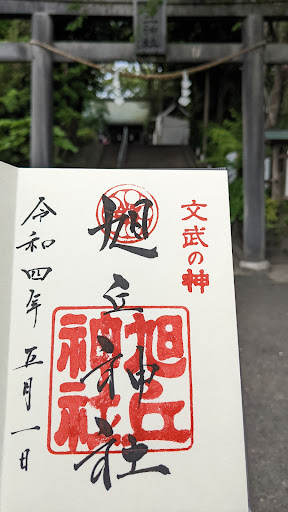 文武の神
旭丘神社
旭丘
神社
令和四年 五月一日